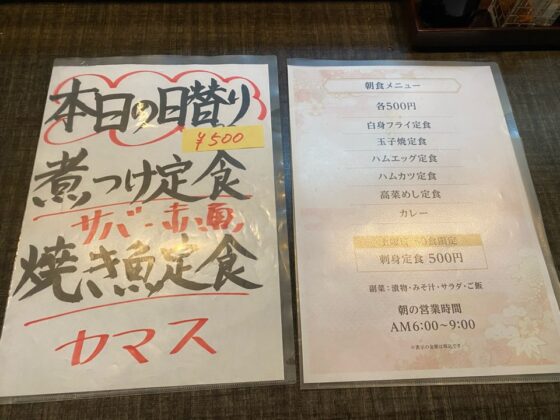 本日の日替り
¥500
煮つけ定食
サバ・赤魚
焼き魚定食
カマス
朝食メニュー
各500円
白身フライ定食
玉子焼定食
ハムエッグ定食
ハムカツ定食
高菜めし定食
カレー
土曜日 食限定
刺身定食 500円
副菜:漬物・みそ汁・サラダ・ご飯
朝の営業時間
AM6:00~9:00
※表示の金額は税込です